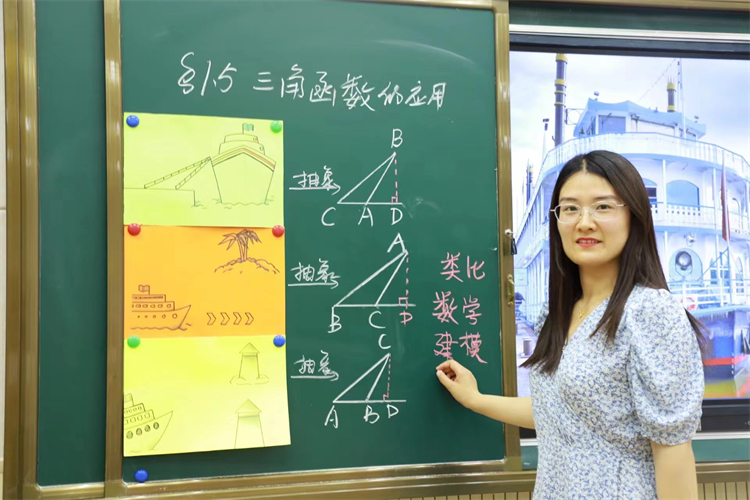 §1.5 三角函数的应用
抽象
B
C A D
抽象
A
B C D
抽象
C
A B D
类比
数学
建模